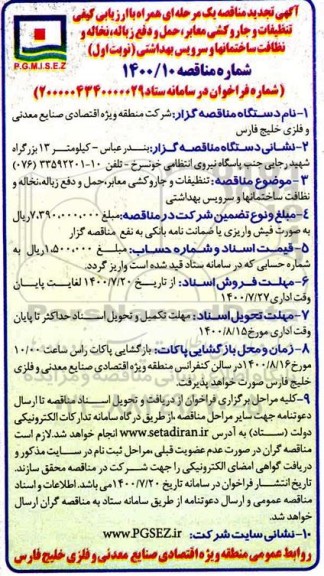 P.G.M.I.S.E.Z
آگهی تجدید مناقصه یک مرحله ای همراه با ارزیابی کیفی
تنظیفات و جاروکشی معابر، حمل و دفع زباله، نخاله و
نظافت ساختمانها و سرویس بهداشتی (نوبت اول)
شماره مناقصه ۱۴۰۰/۱۰
(شماره فراخوان در سامانه ستاد ۲۰۰۰۰۰۴۳۴۰۰۰۰۲۹)
۱-نام دستگاه مناقصه گزار: شرکت منطقه ویژه اقتصادی صنایع معدنی
و فلزی خلیج فارس
۲-نشانی دستگاه مناقصه گزار: بندرعباس - کیلومتر ۱۳ بزرگراه
شهید رجایی جنب پاسگاه نیروی انتظامی خونسرخ - تلفن ۱۰-۳۳۵۹۲۲۰۱ (۰۷۶)
۳-موضوع مناقصه: تنظیفات و جاروکشی معابر، حمل و دفع زباله، نخاله و
نظافت ساختمانها و سرویس بهداشتی
۴-مبلغ و نوع تضمین شرکت در مناقصه: مبلغ ۷.۳۹۰.۰۰۰.۰۰۰ ریال
به صورت فیش واریزی یا ضمانت نامه بانکی به نفع مناقصه گزار
۵-قیمت اسناد و شماره حساب: مبلغ ۱.۵۰۰.۰۰۰ ریال به
شماره حسابی که در سامانه ستاد قید شده است واریز گردد.
۶-مهلت فروش اسناد: از تاریخ ۱۴۰۰/۷/۲۰ لغایت پایان
وقت اداری ۱۴۰۰/۷/۲۷
۷-مهلت تحویل اسناد: مهلت تکمیل و تحویل اسناد حداکثر تا پایان
وقت اداری مورخ ۱۴۰۰/۸/۱۵
۸-زمان و محل بازگشایی پاکات: بازگشایی پاکات راس ساعت ۱۰/۰۰
مورخ ۱۴۰۰/۸/۱۶ در سالن کنفرانس منطقه ویژه اقتصادی صنایع معدنی و فلزی
خلیج فارس صورت خواهد پذیرفت.
۹-کلیه مراحل برگزاری فراخوان از دریافت و تحویل اسناد مناقصه تا ارسال
دعوتنامه جهت سایر مراحل مناقصه، از طریق درگاه سامانه تدارکات الکترونیکی
دولت (ستاد) به آدرس www.setadiran.ir انجام خواهد شد. لازم است
مناقصه گران در صورت عدم عضویت قبلی، مراحل ثبت نام در سایت مذکور و
دریافت گواهی امضای الکترونیکی را جهت شرکت در مناقصه محقق سازند.
تاریخ انتشار فراخوان در سامانه تاریخ ۱۴۰۰/۷/۲۰ می باشد. اطلاعات و اسناد
مناقصه عمومی و ارسال دعوتنامه از طریق سامانه ستاد به مناقصه گران ارسال
خواهد شد.
۱۰-نشانی سایت شرکت: www.PGSEZ.ir
روابط عمومی منطقه ویژه اقتصادی صنایع معدنی و فلزی خلیج فارس